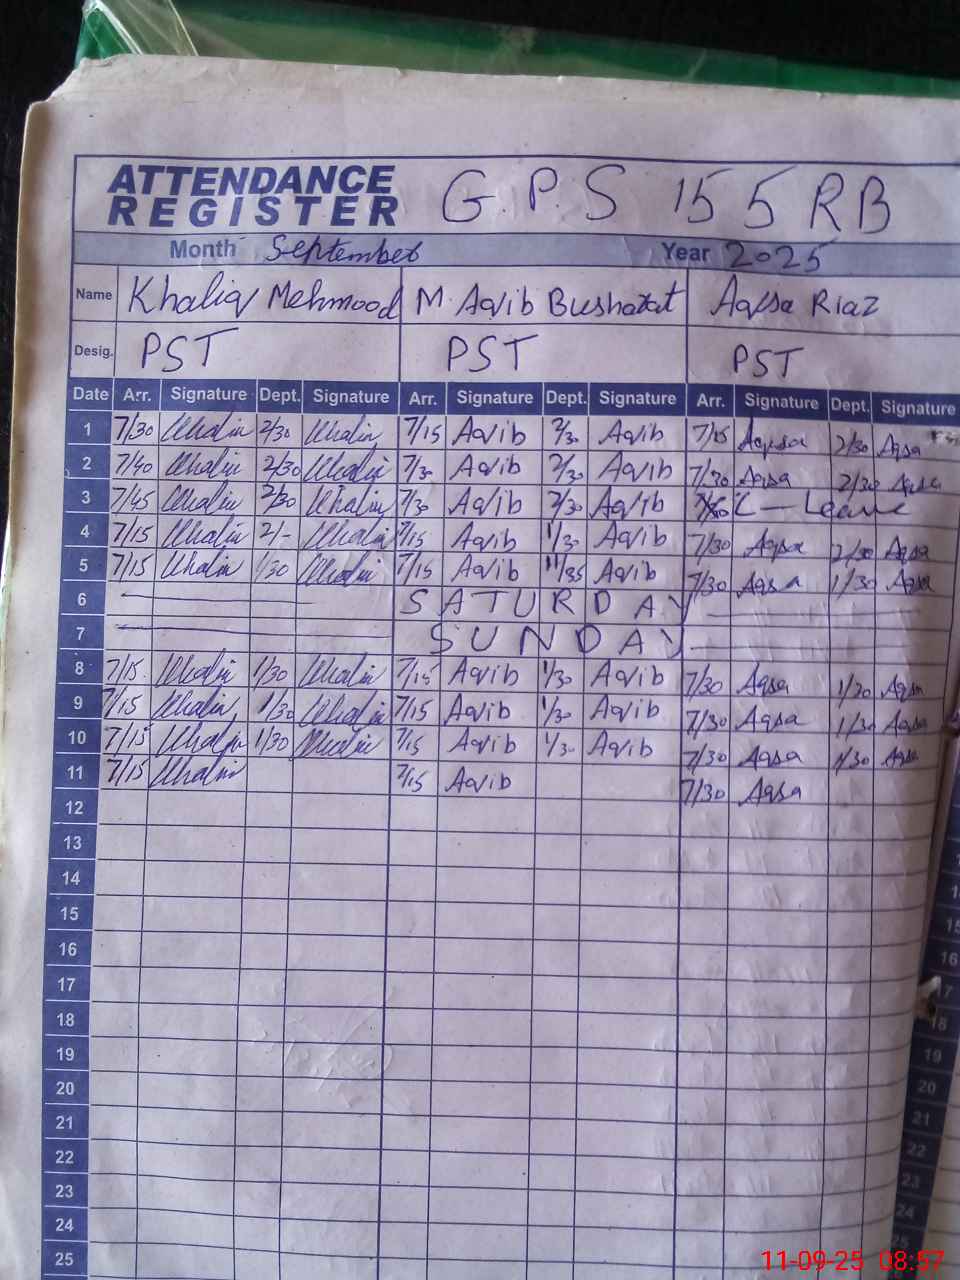 ATTENDANCE REGISTER G.P.S 155 RB
Month September Year 2025
Name Khaliq Mehmood M. Aqib Bushatat Aqsa Riaz
Desig. PST PST PST
Date Arr. Signature Dept. Signature Arr. Signature Dept. Signature Arr. Signature Dept. Signature
1 7/30 Khaliq 2/30 Khaliq 7/15 Aqib 2/30 Aqib 7/15 Aqsa 2/30 Aqsa
2 7/40 Khaliq 2/30 Khaliq 7/30 Aqib 2/30 Aqib 7/30 Aqsa 2/30 Aqsa
3 7/45 Khaliq 2/30 Khaliq 7/30 Aqib 2/30 Aqib C - Leave
4 7/15 Khaliq 2/- Khaliq 7/15 Aqib 1/30 Aqib 7/30 Aqsa Aqsa
5 7/15 Khaliq 1/30 Khaliq 7/15 Aqib 11/35 Aqib 7/30 Aqsa 1/30 Aqsa
6 SATURDAY
7 SUNDAY
8 7/15 Khaliq 1/30 Khaliq 7/15 Aqib 1/30 Aqib 7/30 Aqsa 1/30 Aqsa
9 7/15 Khaliq 1/30 Khaliq 7/15 Aqib 1/30 Aqib 7/30 Aqsa 1/30 Aqsa
10 7/15 Khaliq 1/30 Khaliq 7/15 Aqib 1/30 Aqib 7/30 Aqsa 1/30 Aqsa
11 7/15 Khaliq 7/15 Aqib 7/30 Aqsa
12
13
14
15
16
17
18
19
20
21
22
23
24
25
16
18
19
20
21
22
23
24
25
11-09-25 08:57